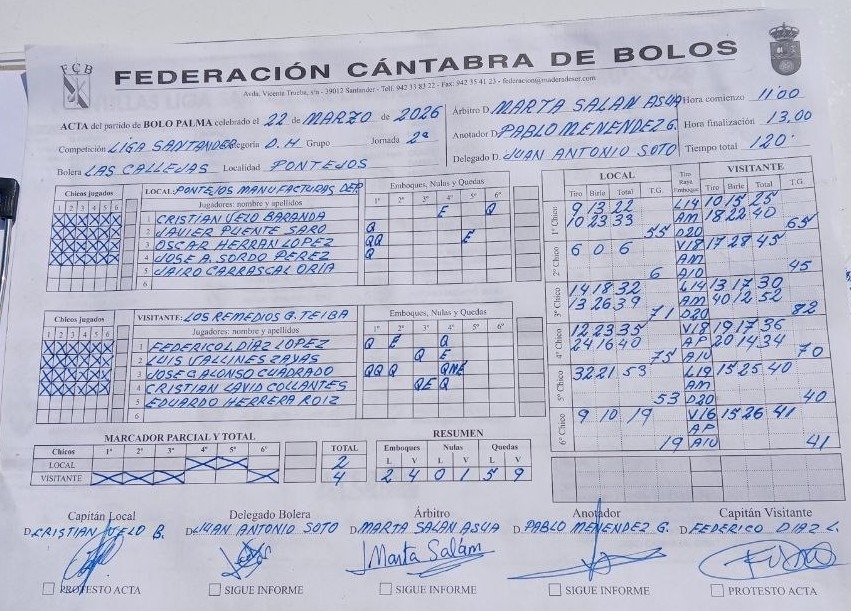 FCB
FEDERACIÓN CÁNTABRA DE BOLOS
Avda. Vicente Trueba, s/n - 39012 Santander - Telf. 942 33 83 22 - Fax: 942 35 41 23 - federacion@maderadeser.com
ACTA del partido de BOLO PALMA celebrado el 22 de MARZO de 2026
Competición LIGA SANTANDER Categoría D.H Grupo Jornada 2ª
Bolera LAS CALLEJAS Localidad PONTEJOS
Árbitro D. MARTA SALAN ASUA Hora comienzo 11'00
Anotador D. PABLO MENENDEZ G. Hora finalización 13,00
Delegado D. JUAN ANTONIO SOTO Tiempo total 120'
Chicos jugados LOCAL: PONTEJOS MANUFACTURAS DEP. Emboques, Nulas y Quedas
1 2 3 4 5 6 Jugadores: nombre y apellidos 1º 2º 3º 4º 5º 6º
1 CRISTIAN VELO BARANDA E Q
2 JAVIER PUENTE SARO Q
3 OSCAR HERRAN LOPEZ QQ E
4 JOSE A. SORDO PEREZ Q
5 JAIRO CARRASCAL ORIA
6
Chicos jugados VISITANTE: LOS REMEDIOS G. TEIBA Emboques, Nulas y Quedas
1 2 3 4 5 6 Jugadores: nombre y apellidos 1º 2º 3º 4º 5º 6º
1 FEDERICO DIAZ LOPEZ Q E Q
2 LUIS VALLINES ZAYAS Q E
3 JOSE G ALONSO CUADRADO QQ Q QNE
4 CRISTIAN LAVID COLLANTES QE Q
5 EDUARDO HERRERA ROIZ
6
LOCAL Tiro Raya Emboque VISITANTE
Tiro Birle Total T.G. Tiro Birle Total T.G.
1º Chico 9 13 22 L14 10 15 25
10 23 33 AM 18 22 40
55 D20 65
2º Chico 6 0 6 V18 17 28 45
AM
6 A10 45
3º Chico 14 18 32 L14 13 17 30
13 26 39 AM 40 12 52
71 D20 82
4º Chico 12 23 35 V18 19 17 36
24 16 40 AP 20 14 34
75 A10 70
5º Chico 32 21 53 L19 15 25 40
AM
53 D20 40
6º Chico 9 10 19 V16 15 26 41
AP
19 A10 41
MARCADOR PARCIAL Y TOTAL
Chicos 1º 2º 3º 4º 5º 6º TOTAL
LOCAL 2
VISITANTE 4
RESUMEN
Emboques Nulas Quedas
L V L V L V
2 4 0 1 5 9
Capitán Local Delegado Bolera Árbitro Anotador Capitán Visitante
D. CRISTIAN VELO B. D. JUAN ANTONIO SOTO D. MARTA SALAN ASUA D. PABLO MENENDEZ G. D. FEDERICO DIAZ L.
Marta Salám
PROTESTO ACTA SIGUE INFORME SIGUE INFORME SIGUE INFORME PROTESTO ACTA